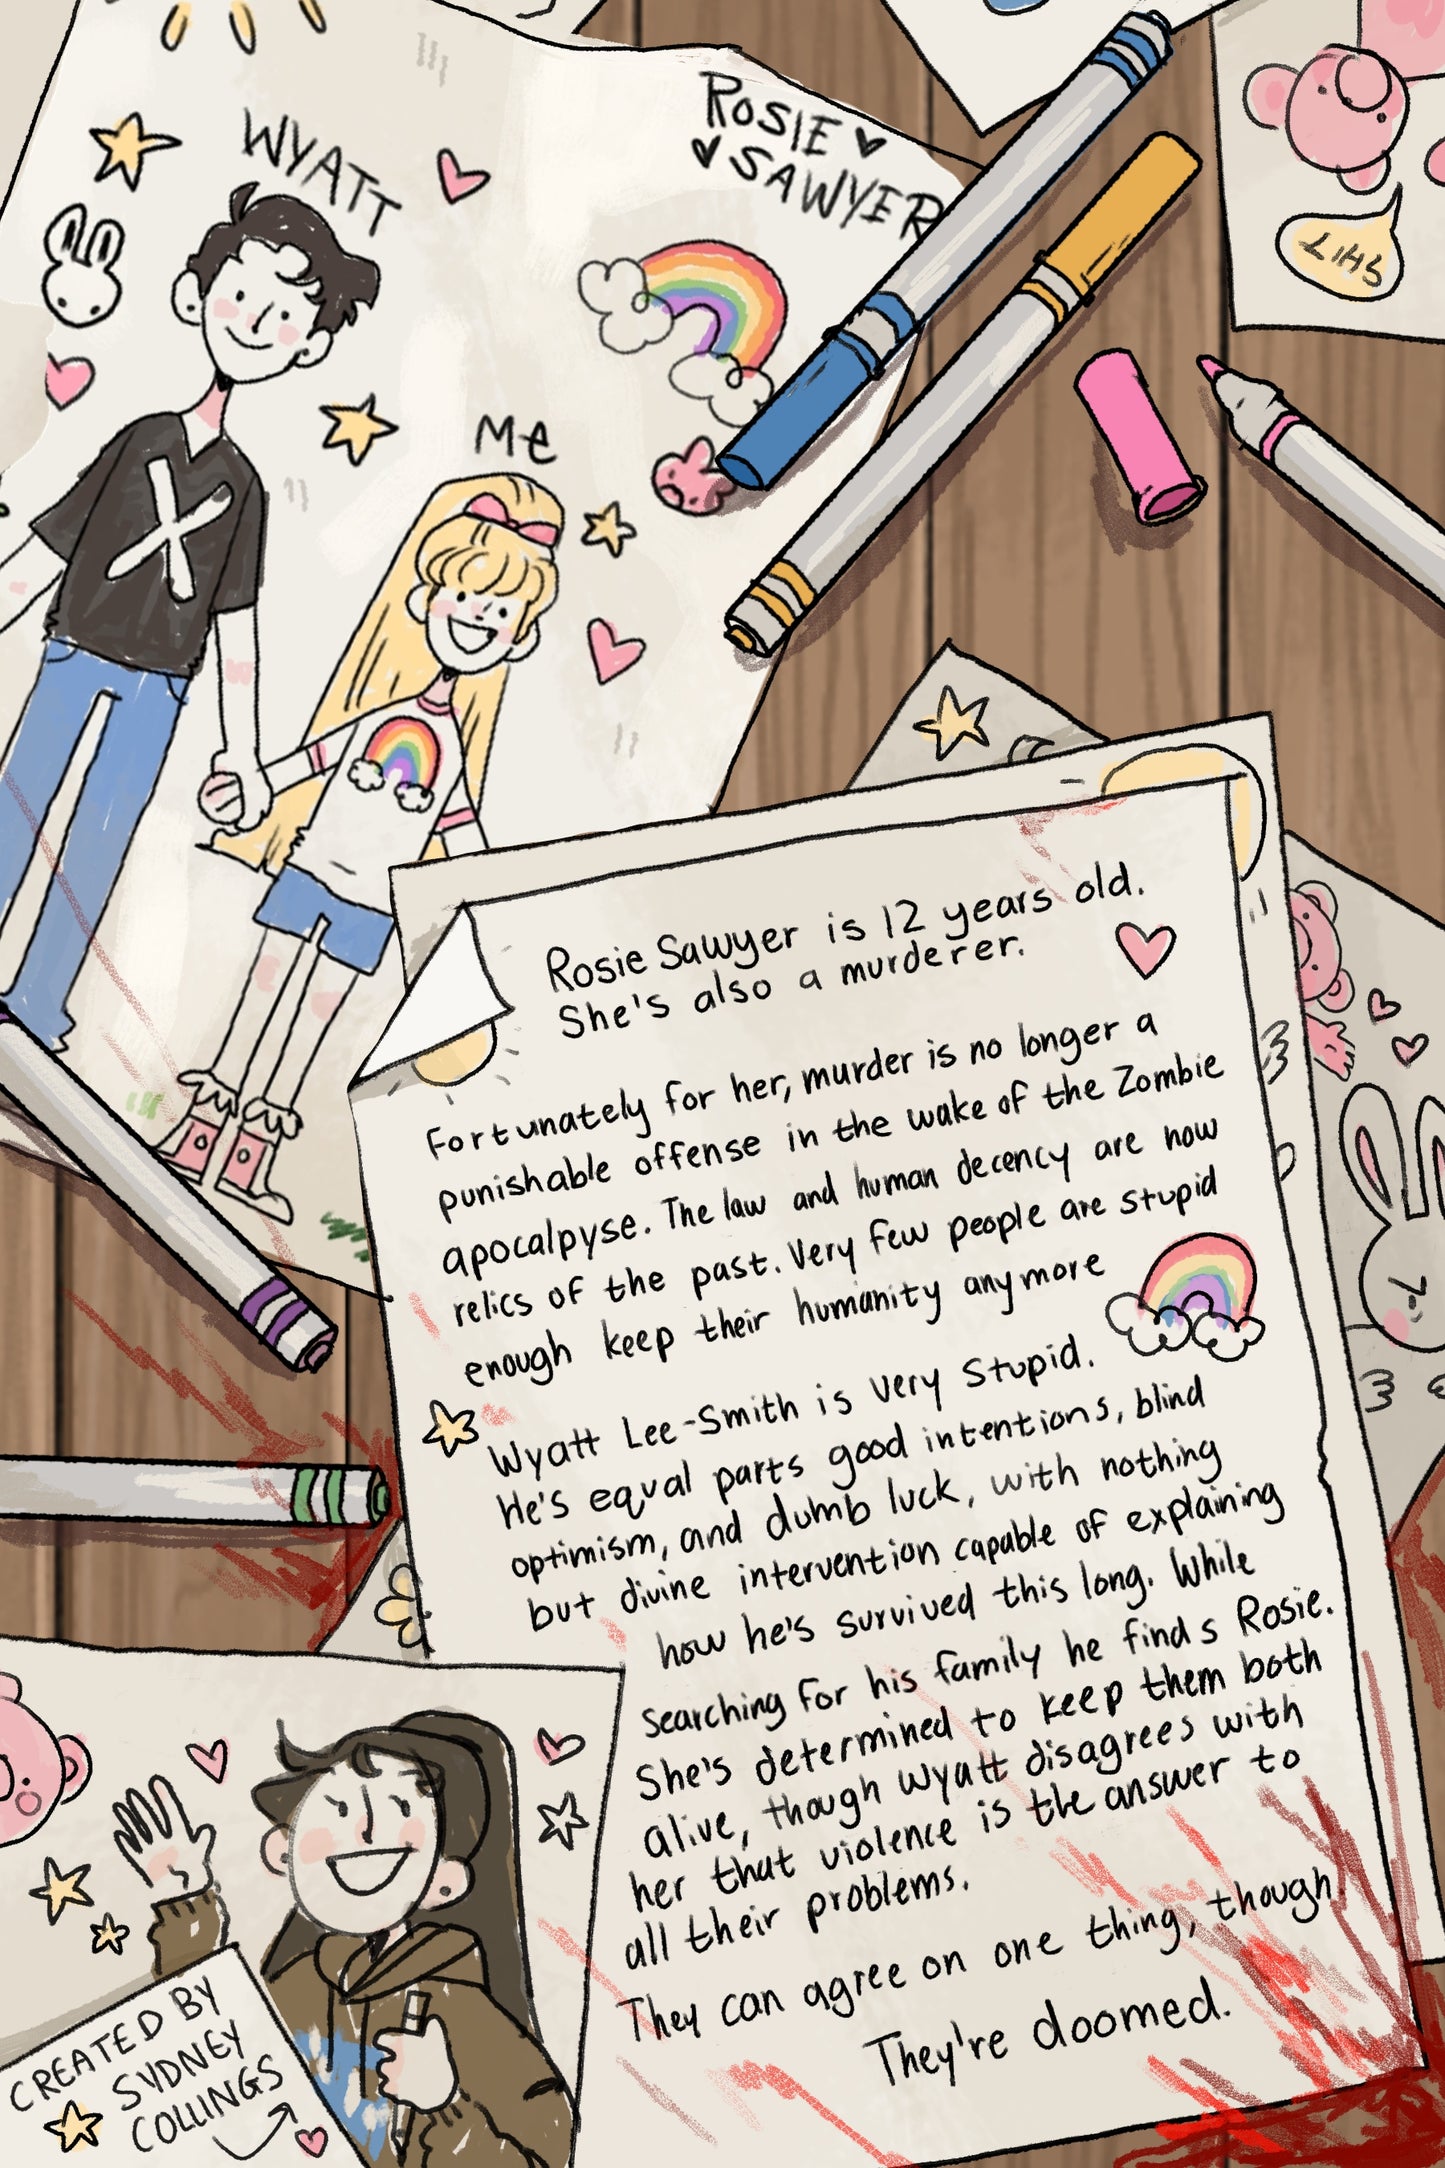 WYATT
ROSIE
SAWYER
SHIT
Me
Rosie Sawyer is 12 years old.
She's also a murderer.
Fortunately for her, murder is no longer a
punishable offense in the wake of the Zombie
apocalpyse. The law and human decency are now
relics of the past. Very few people are stupid
enough keep their humanity anymore
Wyatt Lee-Smith is very stupid.
He's equal parts good intentions, blind
optimism, and dumb luck, with nothing
but divine intervention capable of explaining
how he's survived this long. While
searching for his family he finds Rosie.
She's determined to keep them both
alive, though Wyatt disagrees with
her that violence is the answer to
all their problems.
They can agree on one thing, though
They're doomed.
CREATED BY
SYDNEY
COLLINGS